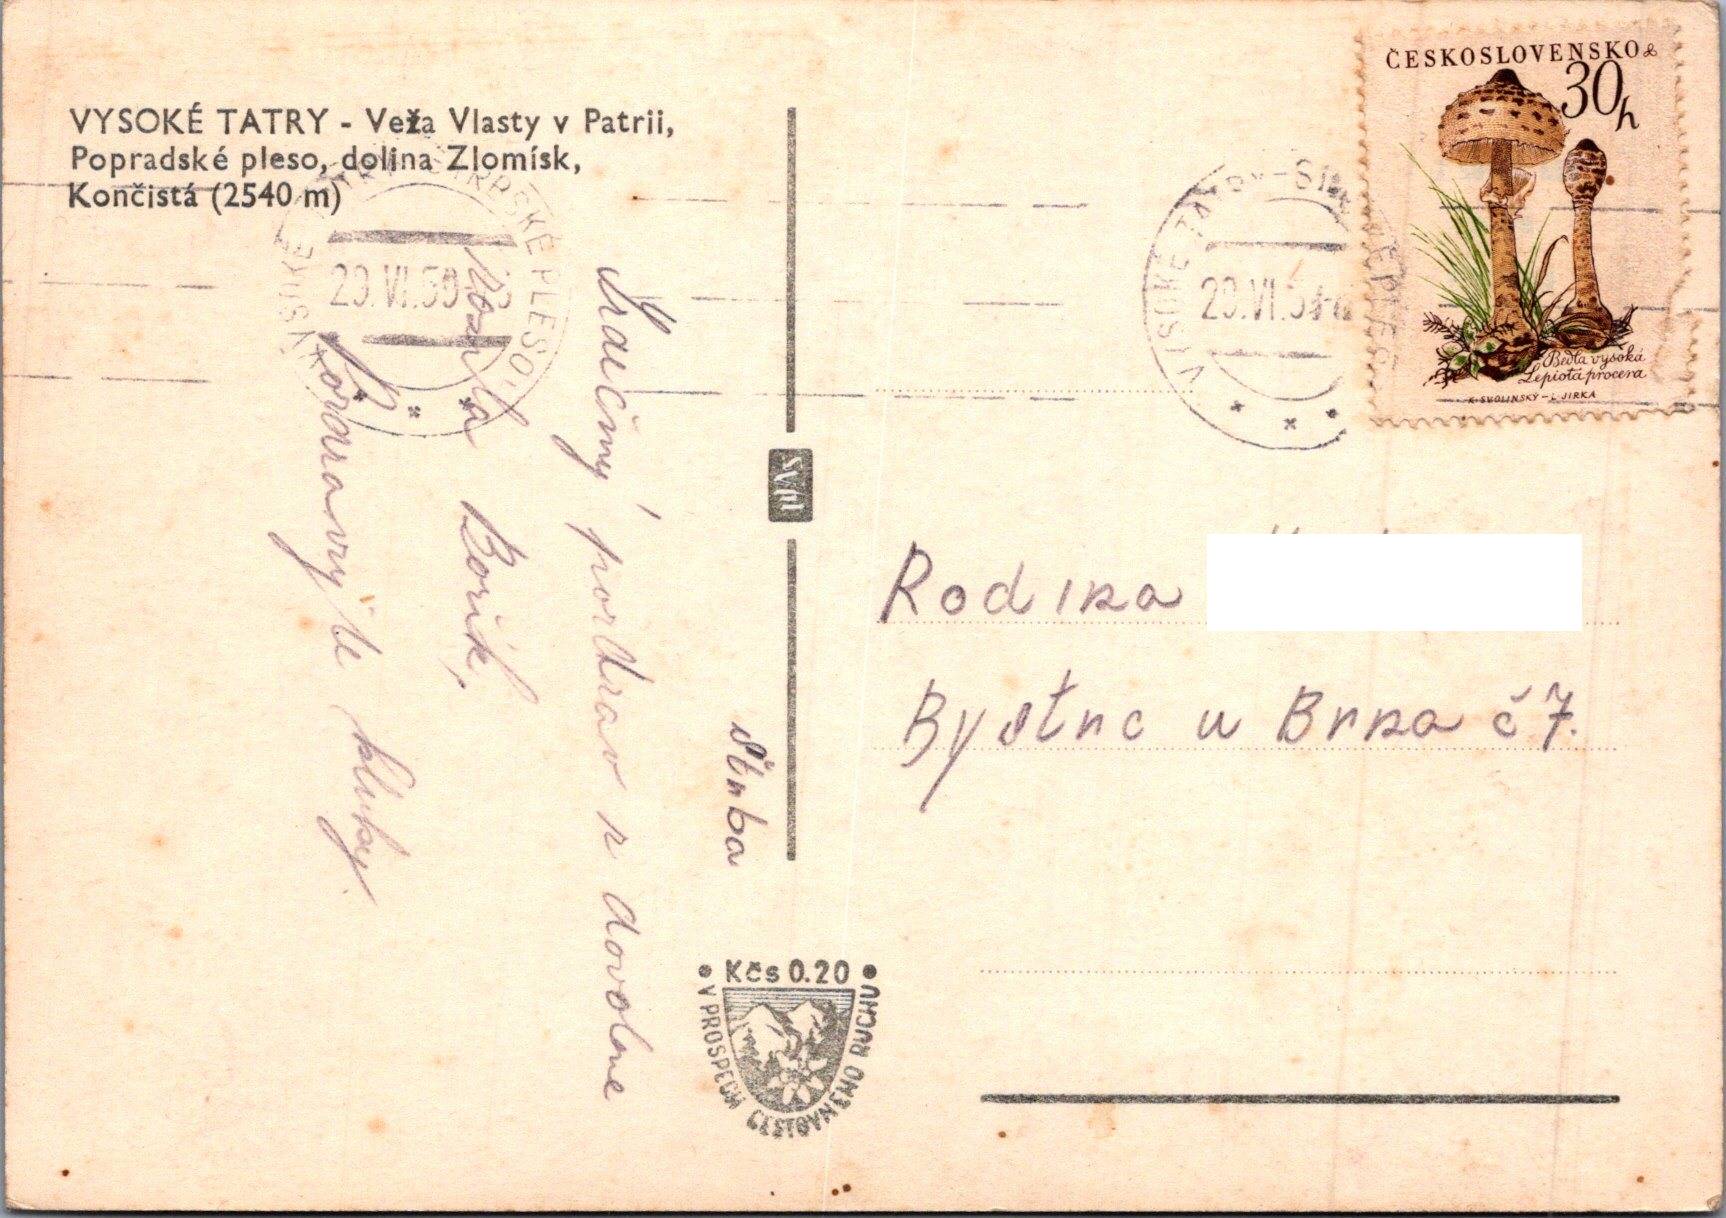 VYSOKÉ TATRY - Veža Vlasty v Patrii,
Popradské pleso, dolina Zlomísk,
Končistá (2540 m)
VYSOKÉ TATRY - ŠTRBSKÉ PLESO
29.VI.59
Srdečný pozdrav z dovolne
Borik,
Pozdravujte kluky.
Štrba
SVPL
Kčs 0.20
V PROSPECH CESTOVNÉHO RUCHU
ČESKOSLOVENSKO
30h
Bedla vysoká
Lepiota procera
K. SVOLINSKÝ - L. JIRKA
VYSOKÉ TATRY - ŠTRBSKÉ PLESO
29.VI.59
Rodina
Bystrc u Brna č 7.